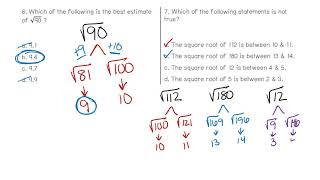 6. Which of the following is the best estimate
of √90 ?
a. 9.1
b. 9.4
c. 9.7
d. 9.9
√90
+9
+10
√81
√100
9
10
7. Which of the following statements is not
true?
a. The square root of 112 is between 10 & 11.
b. The square root of 180 is between 13 & 14.
c. The square root of 12 is between 4 & 5.
d. The square root of 5 is between 2 & 3.
√112
√180
√12
√100
√121
√169
√196
√9
10
11
13
14
3